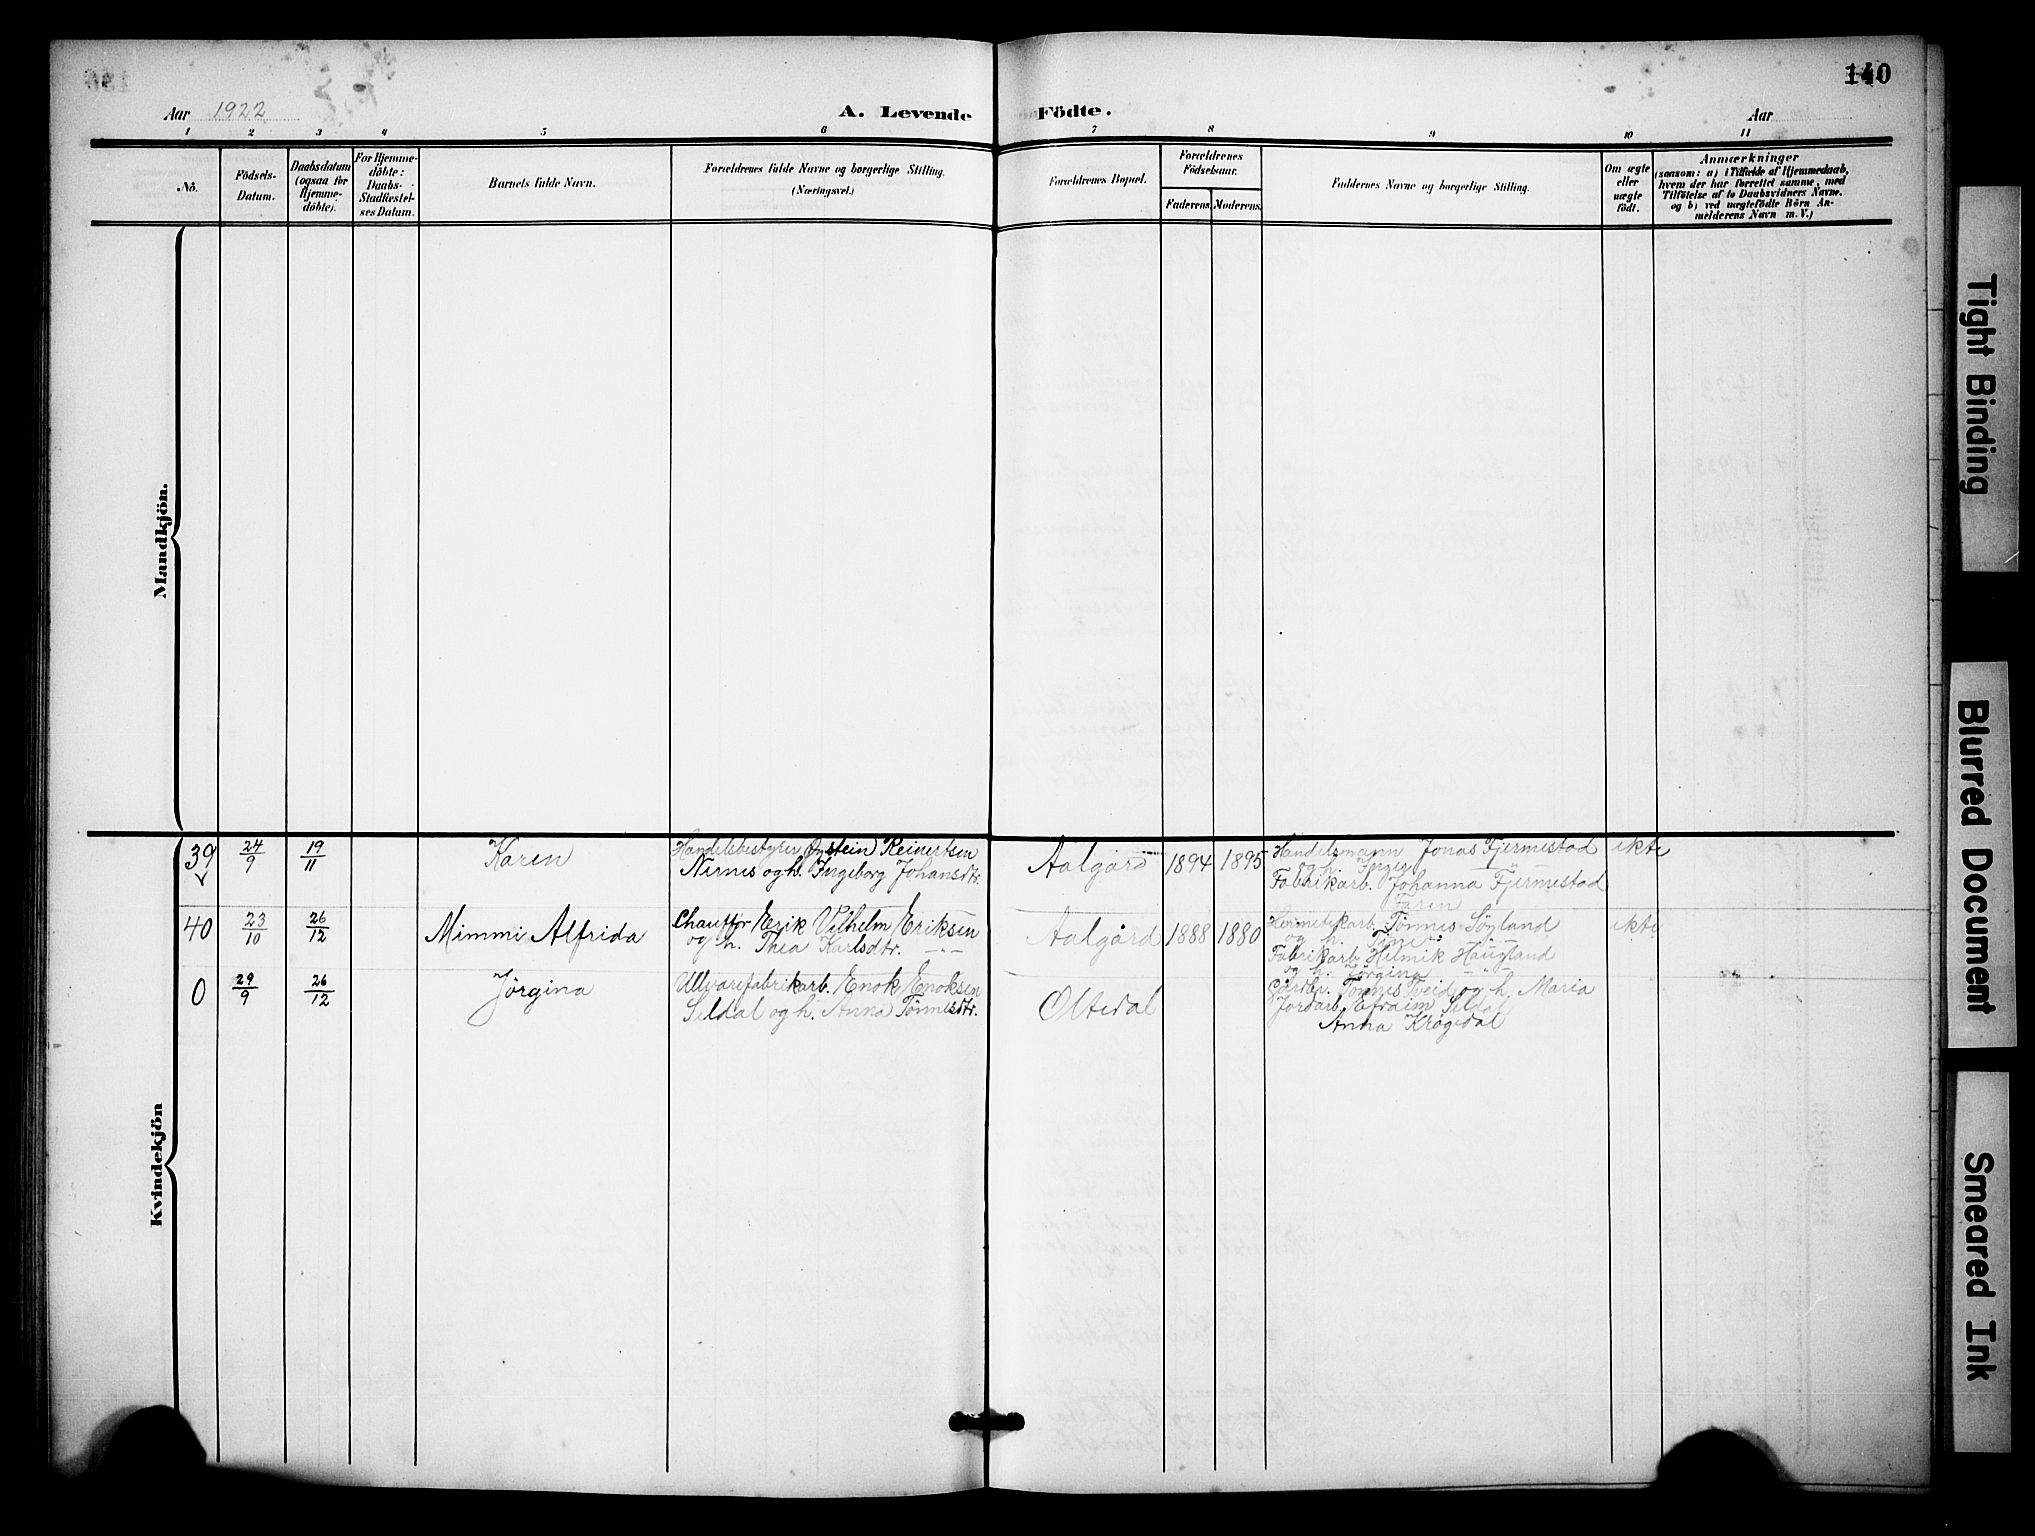 140
Aar 1922
A. Levende Födte.
Aar
1 2 3 4 5 6 7 8 9 10 11
No.
Födsels-
Datum.
Daabsdatum
(ogsaa for
Hjemme-
döbte).
For Hjemme-
döbte:
Daabs-
Stadfæstel-
ses Datum.
Barnets fulde Navn.
Forældrenes fulde Navne og borgerlige Stilling.
(Næringsvei.)
Forældrenes Bopæl.
Forældrenes
Födselsaar.
Faderens. Moderens.
Faddernes Navne og borgerlige Stilling.
Om ægte
eller
uægte
födt.
Anmærkninger
(saasom: a) i Tilfælde af Hjemmedaab,
hvem der har forrettet samme, med
Tilföielse af to Daabsvidners Navne.
og b) ved uægtefödte Börn An-
melderens Navn m. V.)
Mandkjön.
Kvindekjön
39
24/9
19/11
Karen
Handelsbestyrer Øystein Reinertsen
Nirnes og h. Ingeborg Johansdtr.
Aalgård
1894
1895
Handelsmann Jonas Fjermestad
og h. Inger
Fabrikarb. Johanna Fjermestad
Karen
ekte
40
23/10
26/12
Mimmi Alfrida
Chauffør Erik Vilhelm Eriksen
og h. Thea Karlsdtr. -"-
Aalgård
1888
1880
Hermetikarb. Tønnes Søyland
og h. Tine
Fabrikarb. Helmik Haugland
og h. Jörgina -"-
ekte
0
29/9
26/12
Jörgina
Ullvarefabrikarb. Enok Enoksen
Seldal og h. Anna Tönnesdtr.
Oltedal
Gårdbr. Tönnes Tveid og h. Maria
Jordarb. Efraim Seldal
Anna Krågedal
Tight Binding
Blurred Document
Smeared Ink